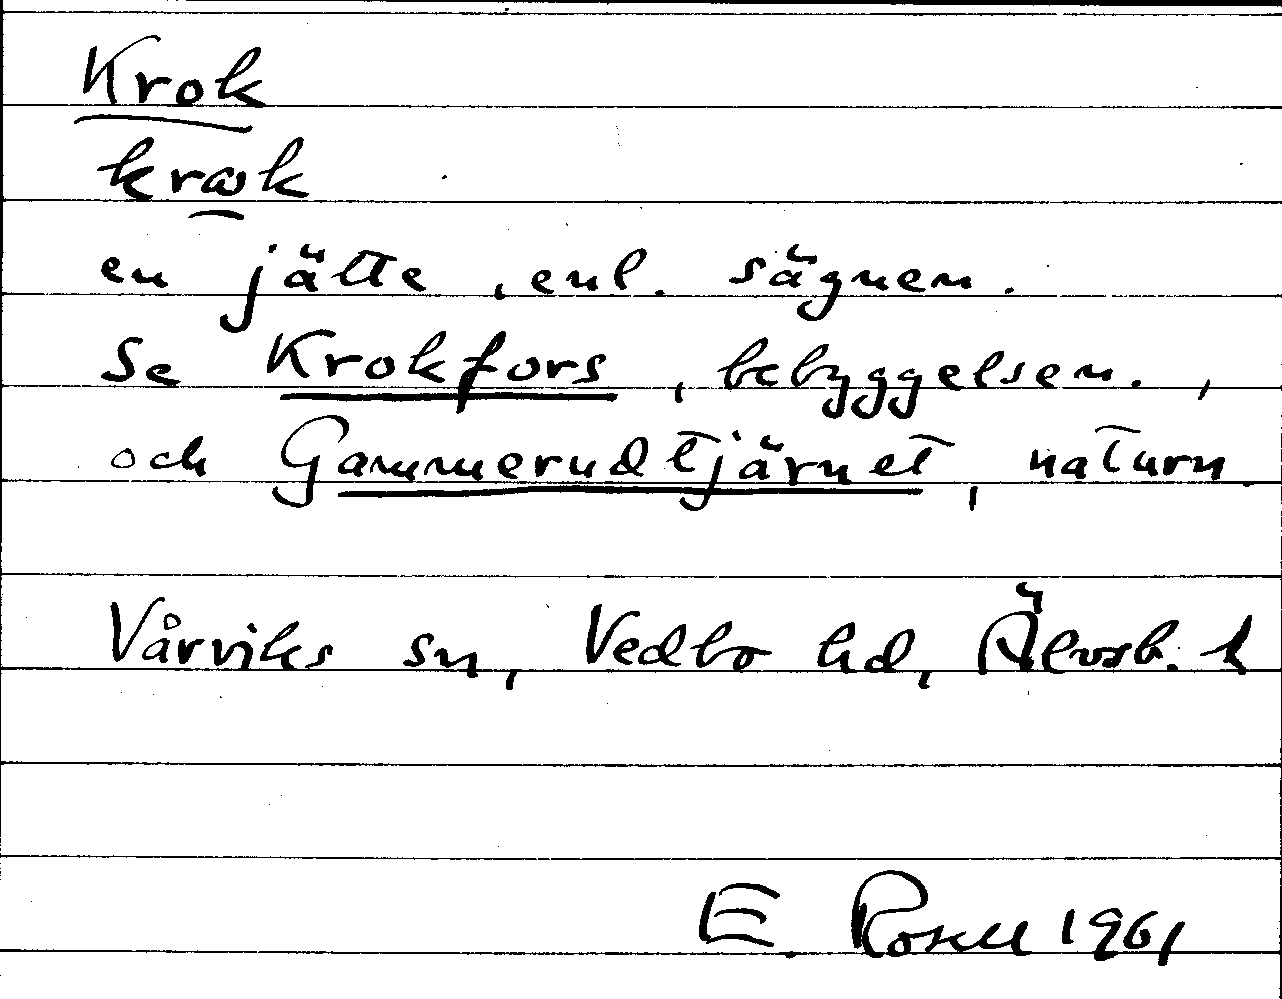 Krok
krωk
en jätte, enl. sägnen.
Se Krokfors, bebyggelsen.,
och Gammerudtjärnet, naturn.
Vårviks sn, Vedbo hd, Älvsb. l
E. Rosell 1961